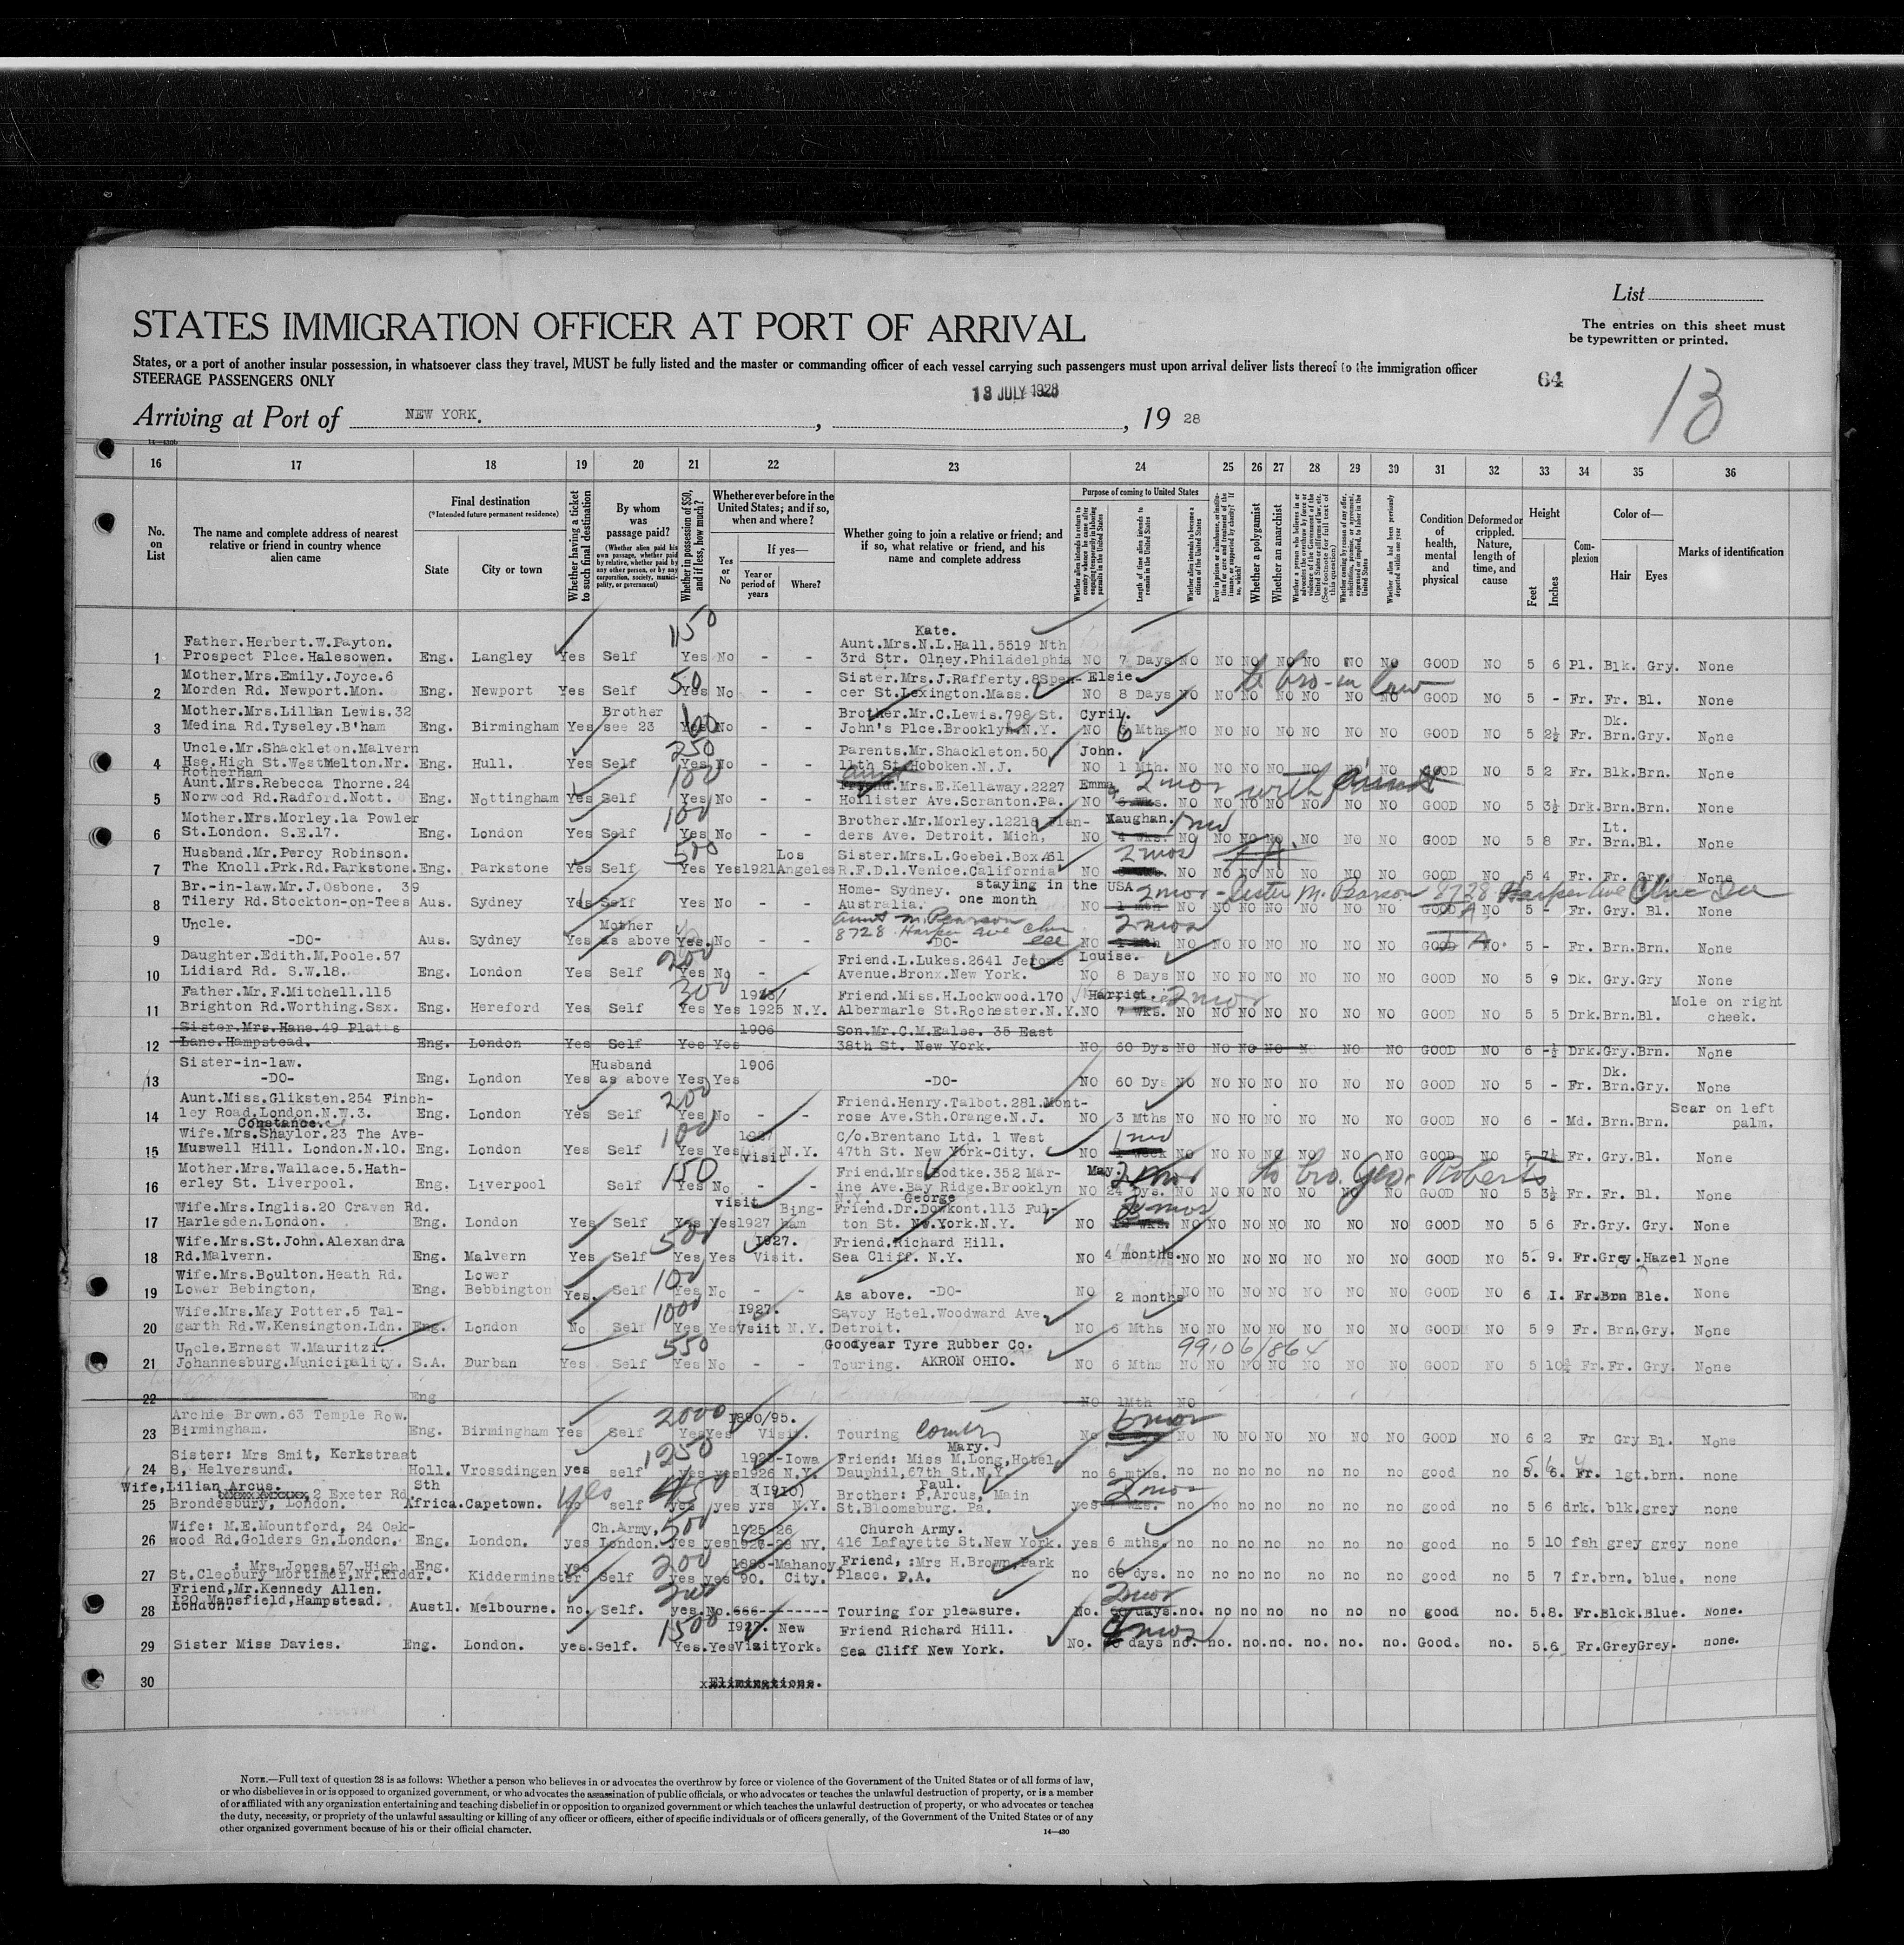 List
STATES IMMIGRATION OFFICER AT PORT OF ARRIVAL
The entries on this sheet must
be typewritten or printed.
States, or a port of another insular possession, in whatsoever class they travel, MUST be fully listed and the master or commanding officer of each vessel carrying such passengers must upon arrival deliver lists thereof to the immigration officer
STEERAGE PASSENGERS ONLY
64
13
13 JULY 1928
Arriving at Port of NEW YORK. , , 19 28
16 17 18 19 20 21 22 23 24 25 26 27 28 29 30 31 32 33 34 35 36
No. on List
The name and complete address of nearest relative or friend in country whence alien came
Final destination
(*Intended future permanent residence)
State
City or town
Whether having a ticket to such final destination
By whom was passage paid?
(Whether alien paid his own passage, whether paid by relative, whether paid by any other person, or by any corporation, society, municipality, or government)
Whether in possession of $50, and if less, how much?
Whether ever before in the United States; and if so, when and where?
Yes or No
If yes—
Year or period of years
Where?
Whether going to join a relative or friend; and if so, what relative or friend, and his name and complete address
Purpose of coming to United States
Length of time alien intends to remain in the United States
Whether alien intends to become a citizen of the United States
Whether a polygamist
Whether an anarchist
Condition of health, mental and physical
Deformed or crippled. Nature, length of time, and cause
Height
Feet
Inches
Complexion
Color of—
Hair
Eyes
Marks of identification
150 Kate.
Father.Herbert.W.Payton. Aunt.Mrs.N.L.Hall.5519 Nth
1 Prospect Plce.Halesowen. Eng. Langley Yes Self Yes No - - 3rd Str. Olney.Philadelphia NO 7 Days NO NO NO NO NO NO NO GOOD NO 5 6 Pl. Blk. Gry. None
Mother.Mrs.Emily.Joyce.6 50 Sister.Mrs.J.Rafferty.8Spen- Elsie. to bro-in law
2 Morden Rd. Newport.Mon. Eng. Newport Yes Self Yes No - - cer St.Lexington.Mass. NO 8 Days NO NO NO NO NO NO NO GOOD NO 5 - Fr. Fr. Bl. None
Mother.Mrs.Lillian Lewis.32 Brother 100 Brother.Mr.C.Lewis.798 St. Cyril. Dk.
3 Medina Rd.Tyseley.B'ham Eng. Birmingham Yes see 23 Yes No - - John's Plce.Brooklyn.N.Y. NO 6 Mths NO NO NO NO NO NO NO GOOD NO 5 2½ Fr. Brn.Gry. None
Uncle.Mr.Shackleton.Malvern 250 Parents.Mr.Shackleton.50 John.
4 Hse.High St.WestMelton.Nr. Eng. Hull. Yes Self Yes No - - 11th St.Hoboken.N.J. NO 1 Mth. NO NO NO NO NO NO NO GOOD NO 5 2 Fr. Blk.Brn. None
Rotherham
Aunt.Mrs.Rebecca Thorne.24 100 Aunt Friend.Mrs.E.Kellaway.2227 Emma. 2 mos with aunt
5 Norwood Rd.Radford.Nott. Eng. Nottingham Yes Self Yes No - - Hollister Ave.Scranton.Pa. NO 6 wks. NO NO NO NO NO NO NO GOOD NO 5 3½ Drk.Brn.Brn. None
Mother.Mrs.Morley.1a Fowler 100 Brother.Mr.Morley.12218 Flan- Maughan. 1 mo Lt.
6 St.London. S.E.17. Eng. London Yes Self Yes No - - ders Ave. Detroit. Mich, NO 4 wks. NO NO NO NO NO NO NO GOOD NO 5 8 Fr. Brn.Bl. None
Husband.Mr.Percy Robinson. 500 Los Sister.Mrs.L.Goebel.Box.A61 2 mos
7 The Knoll.Prk.Rd.Parkstone. Eng. Parkstone Yes Self Yes Yes 1921 Angeles R.F.D.1.Venice.California NO NO NO NO NO NO NO NO GOOD NO 5 4 Fr. Fr. Gry. None
Br.-in-law.Mr.J.Osbone. 39 Home- Sydney. staying in the USA 2 mos - Sister M. Pearson 8728 Harper Ave
8 Tilery Rd.Stockton-on-Tees Aus. Sydney Yes Self Yes No - - Australia. one month NO 1 mon NO NO NO NO NO NO NO GOOD NO 5 - Fr. Gry. Bl. None
Uncle. Mother aunt M. Pearson 2 mos
9 -DO- Aus. Sydney Yes as above Yes. No - - 8728 Harper Ave -DO- NO 1 Mth NO NO NO NO NO NO NO GOOD NO. 5 - Fr. Brn.Brn. None
Daughter.Edith.M.Poole.57 200 Friend.L.Lukes.2641 Jerome Louise.
10 Lidiard Rd. S.W.18. Eng. London Yes Self Yes No - - Avenue.Bronx.New York. NO 8 Days NO NO NO NO NO NO NO GOOD NO 5 9 Dk. Gry.Gry None
Father.Mr.F.Mitchell.115 300 1923/ Friend.Miss.H.Lockwood.170 Harriet. 2 mos Mole on right
11 Brighton Rd.Worthing.Ssx. Eng. Hereford Yes Self Yes Yes 1925 N.Y. Albermarle St.Rochester.N.Y. NO 7 wks. NO NO NO NO NO NO NO GOOD NO 5 5 Drk.Brn.Bl. cheek.
Sister.Mrs.Hane.49 Platts 1906 Son.Mr.C.M.Eales. 35 East
12 Lane.Hampstead. Eng. London Yes Self Yes Yes 38th St. New York. NO 60 Dys NO NO NO NO N NO NO GOOD NO 6 -½ Drk.Gry.Brn. None
Sister-in-law. Husband 1906 Dk.
13 -DO- Eng. London Yes as above Yes Yes -DO- NO 60 Dys NO NO NO NO NO NO NO GOOD NO 5 - Fr. Brn.Gry. None
Aunt.Miss.Gliksten.254 Finch- 200 Friend.Henry.Talbot.281.Mont- Scar on left
14 ley Road.London.N.W.3. Eng. London Yes Self Yes No - - rose Ave.Sth.Orange.N.J. NO 3 Mths NO NO NO NO NO NO NO GOOD NO 6 - Md. Brn.Brn. palm.
Constance.
Wife.Mrs.Shaylor.23 The Ave- 100 1927 C/o.Brentano Ltd. 1 West 1 mo
15 Muswell Hill. London.N.10. Eng. London Yes Self Yes Yes visit N.Y. 47th St. New York-City. NO 1 week NO NO NO NO NO NO NO GOOD NO 5 7½ Fr. Gry.Bl. None
Mother.Mrs.Wallace.5.Hath- 150 Friend.Mrs.Bodtke.352 Mar- May. 2 mos to bro. Geo. Roberts
16 erley St. Liverpool. Eng. Liverpool Self Yes No - - ine Ave.Bay Ridge.Brooklyn NO 24 Dys. NO NO NO NO NO NO NO GOOD NO 5 3½ Fr. Fr. Bl. None
N.Y. George
Wife.Mrs.Inglis.20 Craven Rd. visit Bing- Friend.Dr.Dowkont.113 Ful-
17 Harlesden.London. Eng. London Yes Self Yes Yes 1927 ham ton St. New.York.N.Y. NO NO NO NO NO NO NO NO GOOD NO 5 6 Fr.Gry. Gry. None
Wife.Mrs.St.John.Alexandra 500 1927. Friend.Richard Hill.
18 Rd.Malvern. Eng. Malvern Yes Self Yes Yes Visit. Sea Cliff. N.Y. NO 4 months. NO NO NO NO NO NO NO GOOD NO 5. 9. Fr.Grey.Hazel None
Wife.Mrs.Boulton.Heath Rd. Lower 100
19 Lower Bebington. Eng. Bebbington Yes. Self Yes No - - As above. -DO- NO 2 months NO NO NO NO NO NO NO GOOD NO 6 1. Fr.Brn Ble. None
Wife.Mrs.May Potter.5 Tal- 1000 1927. Savoy Hotel.Woodward Ave.
20 garth Rd.W.Kensington.Ldn. Eng. London No Self Yes Yes Vsiit N.Y. Detroit. NO 6 Mths NO NO NO NO NO NO NO GOOD NO 5 9 Fr. Brn.Gry. None
Uncle.Ernest W.Mauritzi. 550 Goodyear Tyre Rubber Co. 99.06/864
21 Johannesburg.Municipality. S.A. Durban Yes Self Yes No - - Touring. AKRON OHIO. NO 6 Mths NO NO NO NO NO NO NO GOOD NO 5 10½ Fr.Fr. Gry. None
22 Eng NO 1Mth NO
Archie Brown.63 Temple Row. 2000 1890/95. 6 mos
23 Birmingham. Eng. Birmingham Yes Self Yes Yes Visit. Touring NO NO NO NO NO NO NO NO GOOD NO 6 2 Fr Gry Bl. None
Sister: Mrs Smit, Kerkstraat 1250 1925-Iowa Friend: Miss M.Long,Hotel Mary.
24 8, Helversund. Holl. Vrossdingen yes self yes yes 1926 N.Y. Dauphil,67th St.N.Y. no 6 mths. no no no no no no no good no 5. 6. Fr. lgt.brn. none
Wife,Lilian Arcus. Sth yes 450 3(1910) Paul. 2 mos
2 Exeter Rd. Brother: P.Arcus, Main
25 Brondesbury, London. Africa.Capetown. no self yes yes yrs N.Y. St.Bloomsburg. Pa. yes wks. no no no no no no no good no 5 6 drk. blk.grey none
Wife: M.E.Mountford, 24 Oak- Ch.Army. 500 1925-26 Church Army.
26 wood Rd.Golders Gn.London. Eng. London. yes London. yes yes 1926-28 NY. 416 Lafayette St.New York. yes 6 mths. no no no no no no no good no 5 10 fsh grey grey none
: Mrs.Jones,57.High Eng. 200 1883-Mahanoy Friend, :Mrs H.Brown,Park
27 St.Cleobury Mortimer,Nr.Kiddr. Kidderminster yes Self yes yes 90. City. Place. P.A. no 60 dys. no no no no no no no good no 5 7 fr.brn. blue. none
Friend,Mr.Kennedy Allen. 2 mos
120 Mansfield,Hampstead.
28 London. Austl. Melbourne. no. Self. yes. No. Touring for pleasure. No. 60 days. no. no no no no no no good no. 5.8. Fr.Blck.Blue. None.
1500 1927. New Friend Richard Hill.
29 Sister Miss Davies. Eng. London. yes. Self. Yes. Yes Visit York. Sea Cliff New York. No. days no. no. no. no. no. no. no. Good. no. 5.6 Fr.Grey Grey. none.
30 Eliminations.
NOTE.—Full text of question 28 is as follows: Whether a person who believes in or advocates the overthrow by force or violence of the Government of the United States or of all forms of law,
or who disbelieves in or is opposed to organized government, or who advocates the assassination of public officials, or who advocates or teaches the unlawful destruction of property, or is a member
of or affiliated with any organization entertaining and teaching disbelief in or opposition to organized government or which teaches the unlawful destruction of property, or who advocates or teaches
the duty, necessity, or propriety of the unlawful assaulting or killing of any officer or officers, either of specific individuals or of officers generally, of the Government of the United States or of any
other organized government because of his or their official character.
14—430